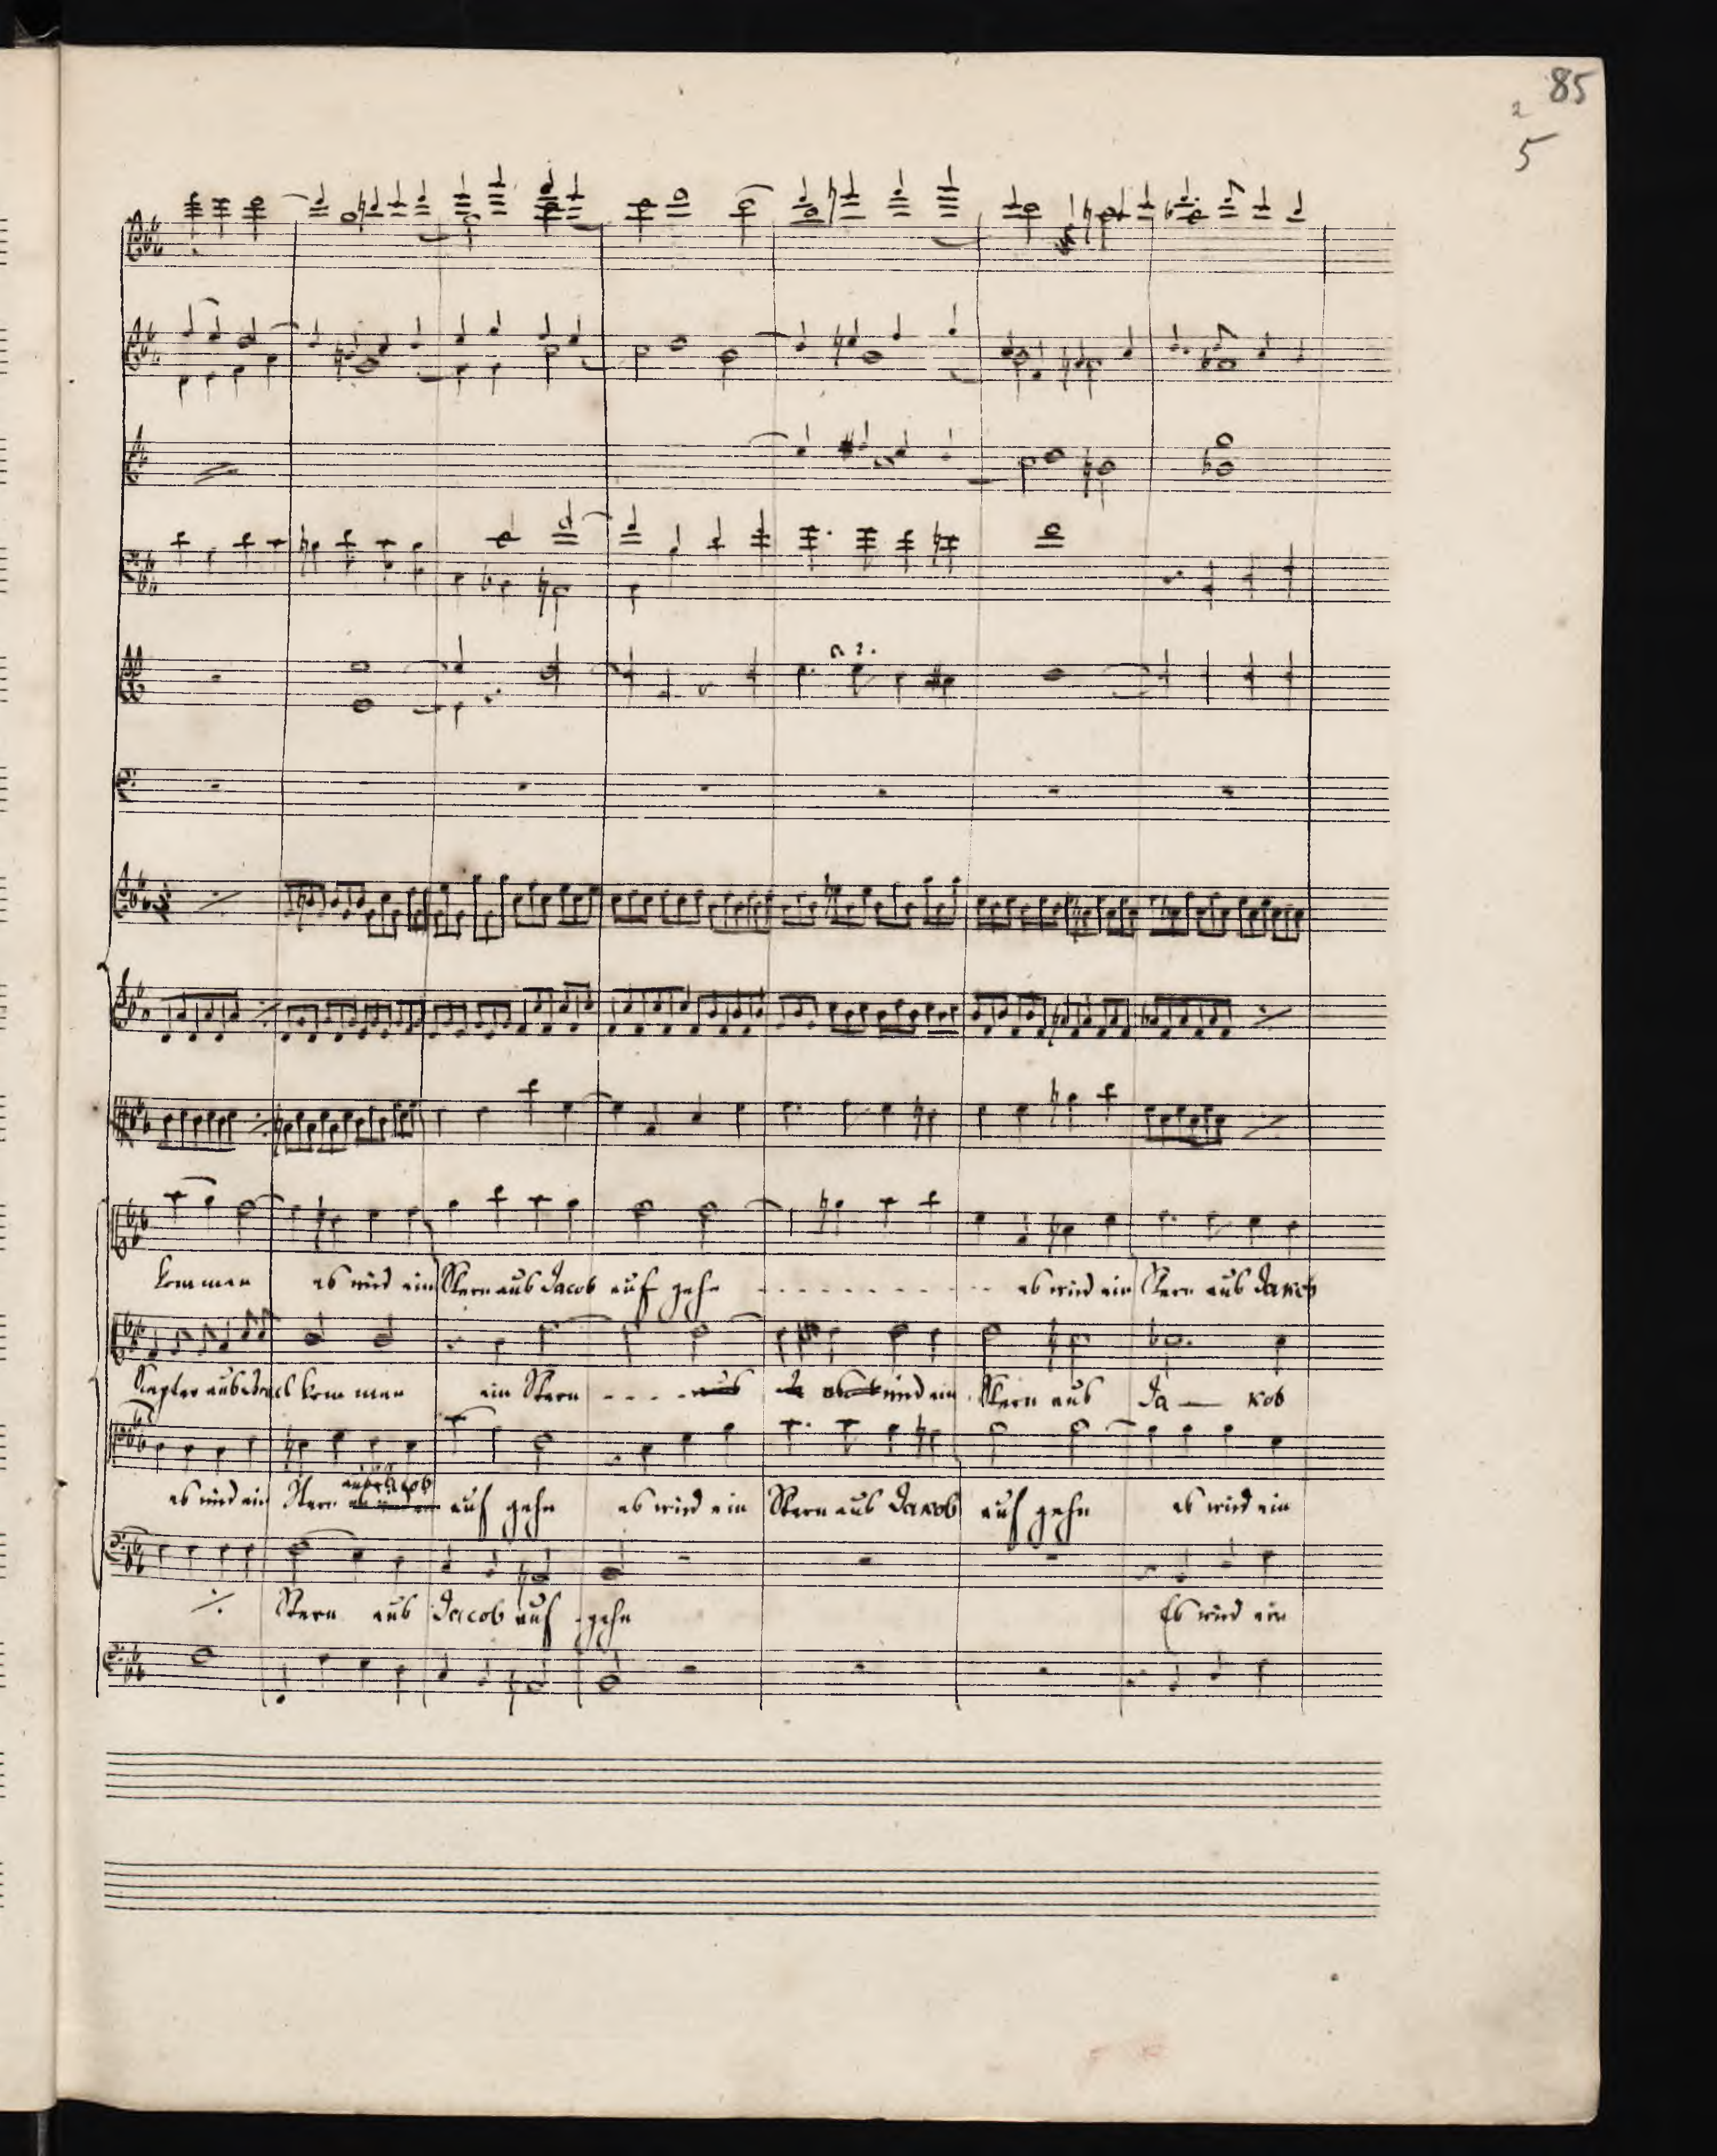 85
2
5
a 2.
kommen es wird ein Stern aus Jacob auf gehn - - - - - - - - - - es wird ein Stern aus Jakob
Szepter aus Israel kommen ein Stern - - - - aus wird ein Stern aus Ja — kob
aus Jacob
es wird ein Stern auf gehn es wird ein Stern aus Jakob auf gehn es wird ein
Stern aus Jacob auf gehn Es wird ein